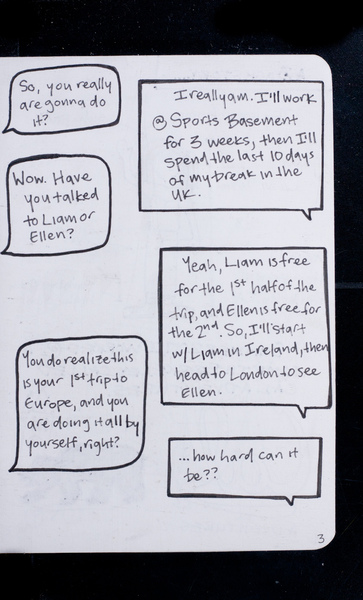 So, you really
are gonna do
it?
I really am. I'll work
@ Sports Basement
for 3 weeks, then I'll
spend the last 10 days
of my break in the
UK.
Wow. Have
you talked
to Liam or
Ellen?
Yeah, Liam is free
for the 1st half of the
trip, and Ellen is free for
the 2nd. So, I'll start
w/ Liam in Ireland, then
head to London to see
Ellen.
You do realize this
is your 1st trip to
Europe, and you
are doing it all by
yourself, right?
...how hard can it
be??
3